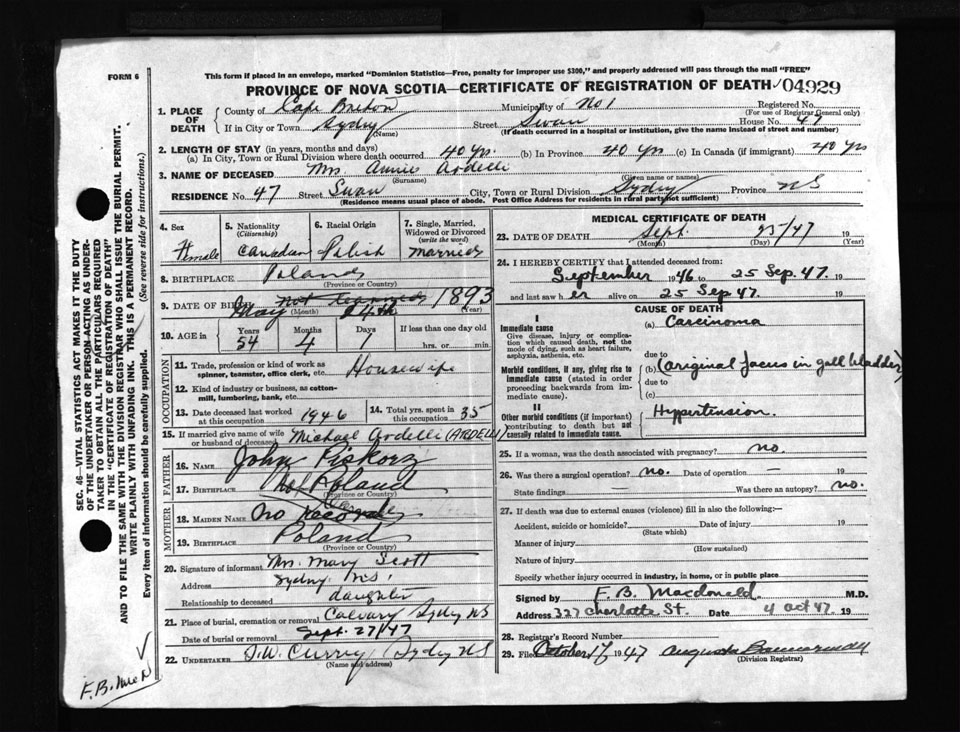 FORM 6
This form if placed in an envelope, marked "Dominion Statistics—Free, penalty for improper use $300," and properly addressed will pass through the mail "FREE"
PROVINCE OF NOVA SCOTIA—CERTIFICATE OF REGISTRATION OF DEATH 04929
1. PLACE OF DEATH County of Cape Breton Municipality of No 1 Registered No.
(For use of Registrar General only)
If in City or Town Sydney Street Swan House No. 47
(Name) (If death occurred in a hospital or institution, give the name instead of street and number)
2. LENGTH OF STAY (in years, months and days)
(a) In City, Town or Rural Division where death occurred 40 yrs. (b) In Province 40 yrs (c) In Canada (if immigrant) 40 yrs
3. NAME OF DECEASED Mrs. Annie Ardelli
(Surname) (Given name or names)
RESIDENCE No. 47 Street Swan City, Town or Rural Division Sydney Province NS
(Residence means usual place of abode. Post Office Address for residents in rural parts not sufficient)
4. Sex Female
5. Nationality (Citizenship) Canadian
6. Racial Origin Polish
7. Single, Married, Widowed or Divorced (write the word) Married
8. BIRTHPLACE Poland
(Province or Country)
9. DATE OF BIRTH May not learned 24th 1893
(Month) (Year)
10. AGE in Years 54 Months 4 Days 1 If less than one day old hrs. or min.
OCCUPATION
11. Trade, profession or kind of work as spinner, teamster, office clerk, etc. Housewife
12. Kind of industry or business, as cotton-mill, lumbering, bank, etc.
13. Date deceased last worked at this occupation 1946
14. Total yrs. spent in this occupation 35
15. If married give name of wife or husband of deceased Michael Ardelli (ARDELLI)
FATHER
16. NAME John Piskorz
17. BIRTHPLACE Poland
(Province or Country)
MOTHER
18. MAIDEN NAME No Record
19. BIRTHPLACE Poland
(Province or Country)
20. Signature of informant Mrs. Mary Scott
Address Sydney NS.
Relationship to deceased daughter
21. Place of burial, cremation or removal Calvary Sydney NS
Date of burial or removal Sept. 27/47
22. UNDERTAKER T.W. Curry Sydney NS
(Name and address)
MEDICAL CERTIFICATE OF DEATH
23. DATE OF DEATH Sept. 25/47 19
(Month) (Day) (Year)
24. I HEREBY CERTIFY that I attended deceased from:
September 1946 to 25 Sep. 47. 19
and last saw her alive on 25 Sep 47. 19
CAUSE OF DEATH
I
Immediate cause (a) Carcinoma
Give disease, injury or complication which caused death, not the mode of dying, such as heart failure, asphyxia, asthenia, etc.
due to
Morbid conditions, if any, giving rise to immediate cause (stated in order proceeding backwards from immediate cause). (b) (original focus in gall bladder)
due to
(c)
II
Other morbid conditions (if important) contributing to death but not causally related to immediate cause. Hypertension.
25. If a woman, was the death associated with pregnancy? no.
26. Was there a surgical operation? no. Date of operation – 19
State findings Was there an autopsy? no.
27. If death was due to external causes (violence) fill in also the following:—
Accident, suicide or homicide? Date of injury 19
(State which)
Manner of injury
(How sustained)
Nature of injury
Specify whether injury occurred in industry, in home, or in public place
Signed by F. B. Macdonald M.D.
Address 327 Charlotte St. Date 4 Oct 47. 19
28. Registrar's Record Number
29. Filed October 17 1947 Augusta
(Division Registrar)
SEC. 46—VITAL STATISTICS ACT MAKES IT THE DUTY
OF THE UNDERTAKER OR PERSON ACTING AS UNDER-
TAKER TO OBTAIN ALL THE PARTICULARS REQUIRED
IN THE "CERTIFICATE OF REGISTRATION OF DEATH"
AND TO FILE THE SAME WITH THE DIVISION REGISTRAR WHO SHALL ISSUE THE BURIAL PERMIT.
WRITE PLAINLY WITH UNFADING INK. THIS IS A PERMANENT RECORD.
Every item of information should be carefully supplied. (See reverse side for instructions.)